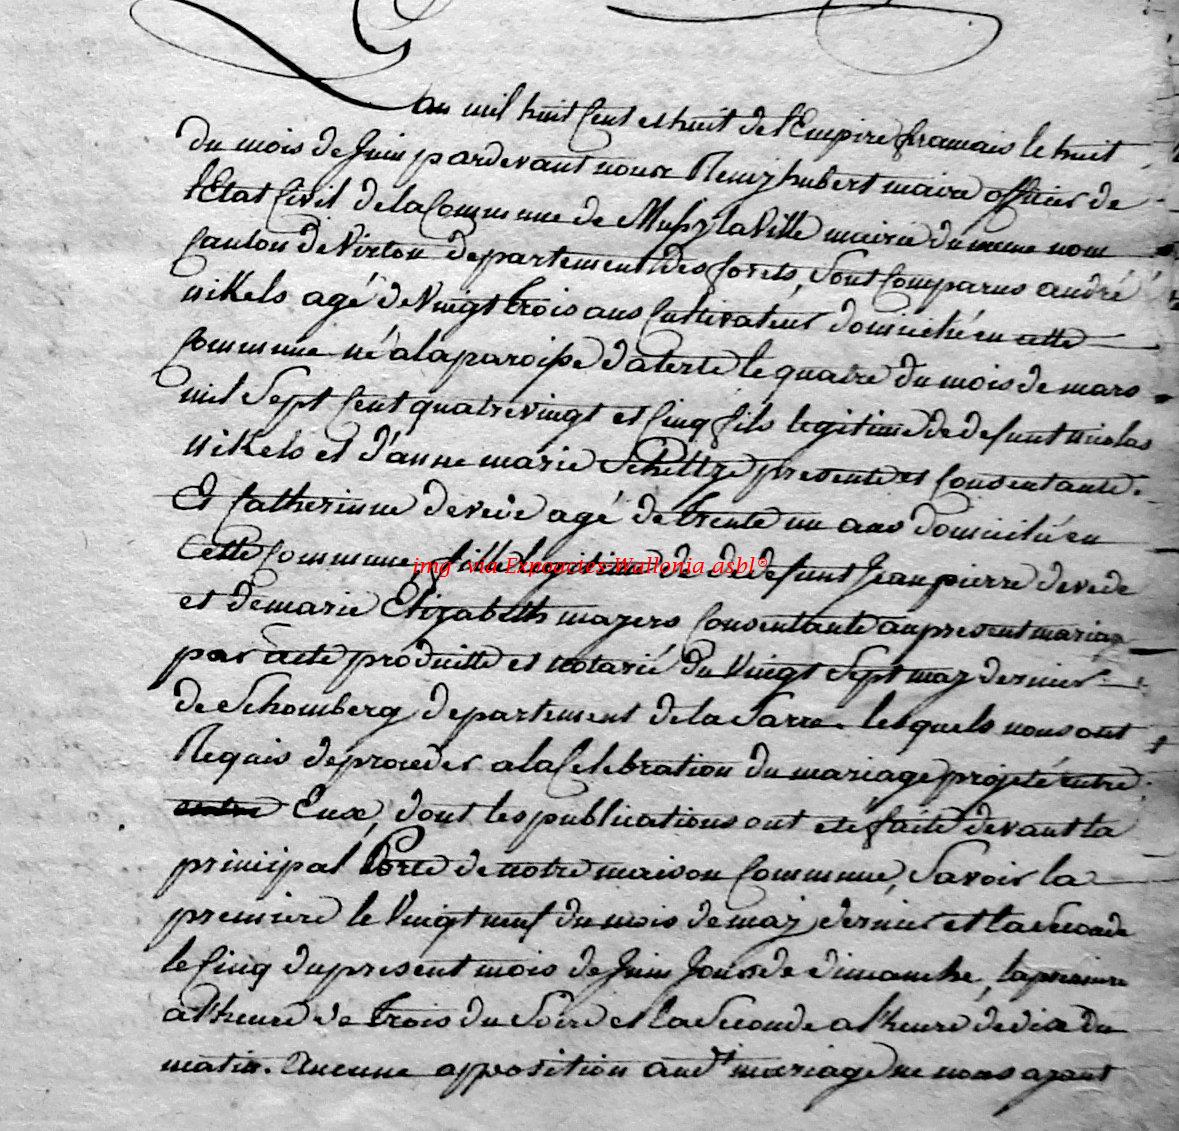 L'an mil huit cent et huit de l'Empire francais le huit
du mois de Juin pardevant nous Remy hubert maire officier de
l'Etat Civil de la Commune de Mussy la Ville mairie du meme nom
Canton de Virton departement des forets, Sont Comparus andré
nikels agé de Vingt trois ans Cultivateur domicilié en cette
Commune né a la paroisse d'aterte le quatre du mois de mars
mil Sept Cent quatre vingt et Cinq fils legitime de defunt nicolas
nikels et d'anne marie Scheltze presente et Consentante.
Et Catherinne devede agé de trente un ans domicilié en
Cette Commune fille legitime de dedefunt Jean pierre devede
et de marie Elizabeth mayers Consentante au present mariage
par acte produitte et notarié du Vingt Sept may dernier
de Schomberg departement de la Sarre lesquels nous ont
Requis de proceder a la Celebration du mariage projeté entre
entre Eux, dont les publications ont eté faite devant la
principal Porte de notre maison Commune, Savoir la
premiere le Vingt neuf du mois de may dernier et la Seconde
le Cinq du present mois de Juin Jours de dimanche, la premiere
a l'heure de trois du Soire et la Seconde a l'heure de dix du
matin. Aucune opposition aud.t mariage ne nous ayant
img via Expoactes-Wallonia asbl°